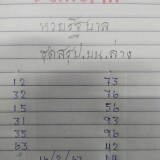 หวยรัฐบาล
ชุดสรุป.บน.ล่าง
12 73
32 76
15 56
31 93
35 96
63 42